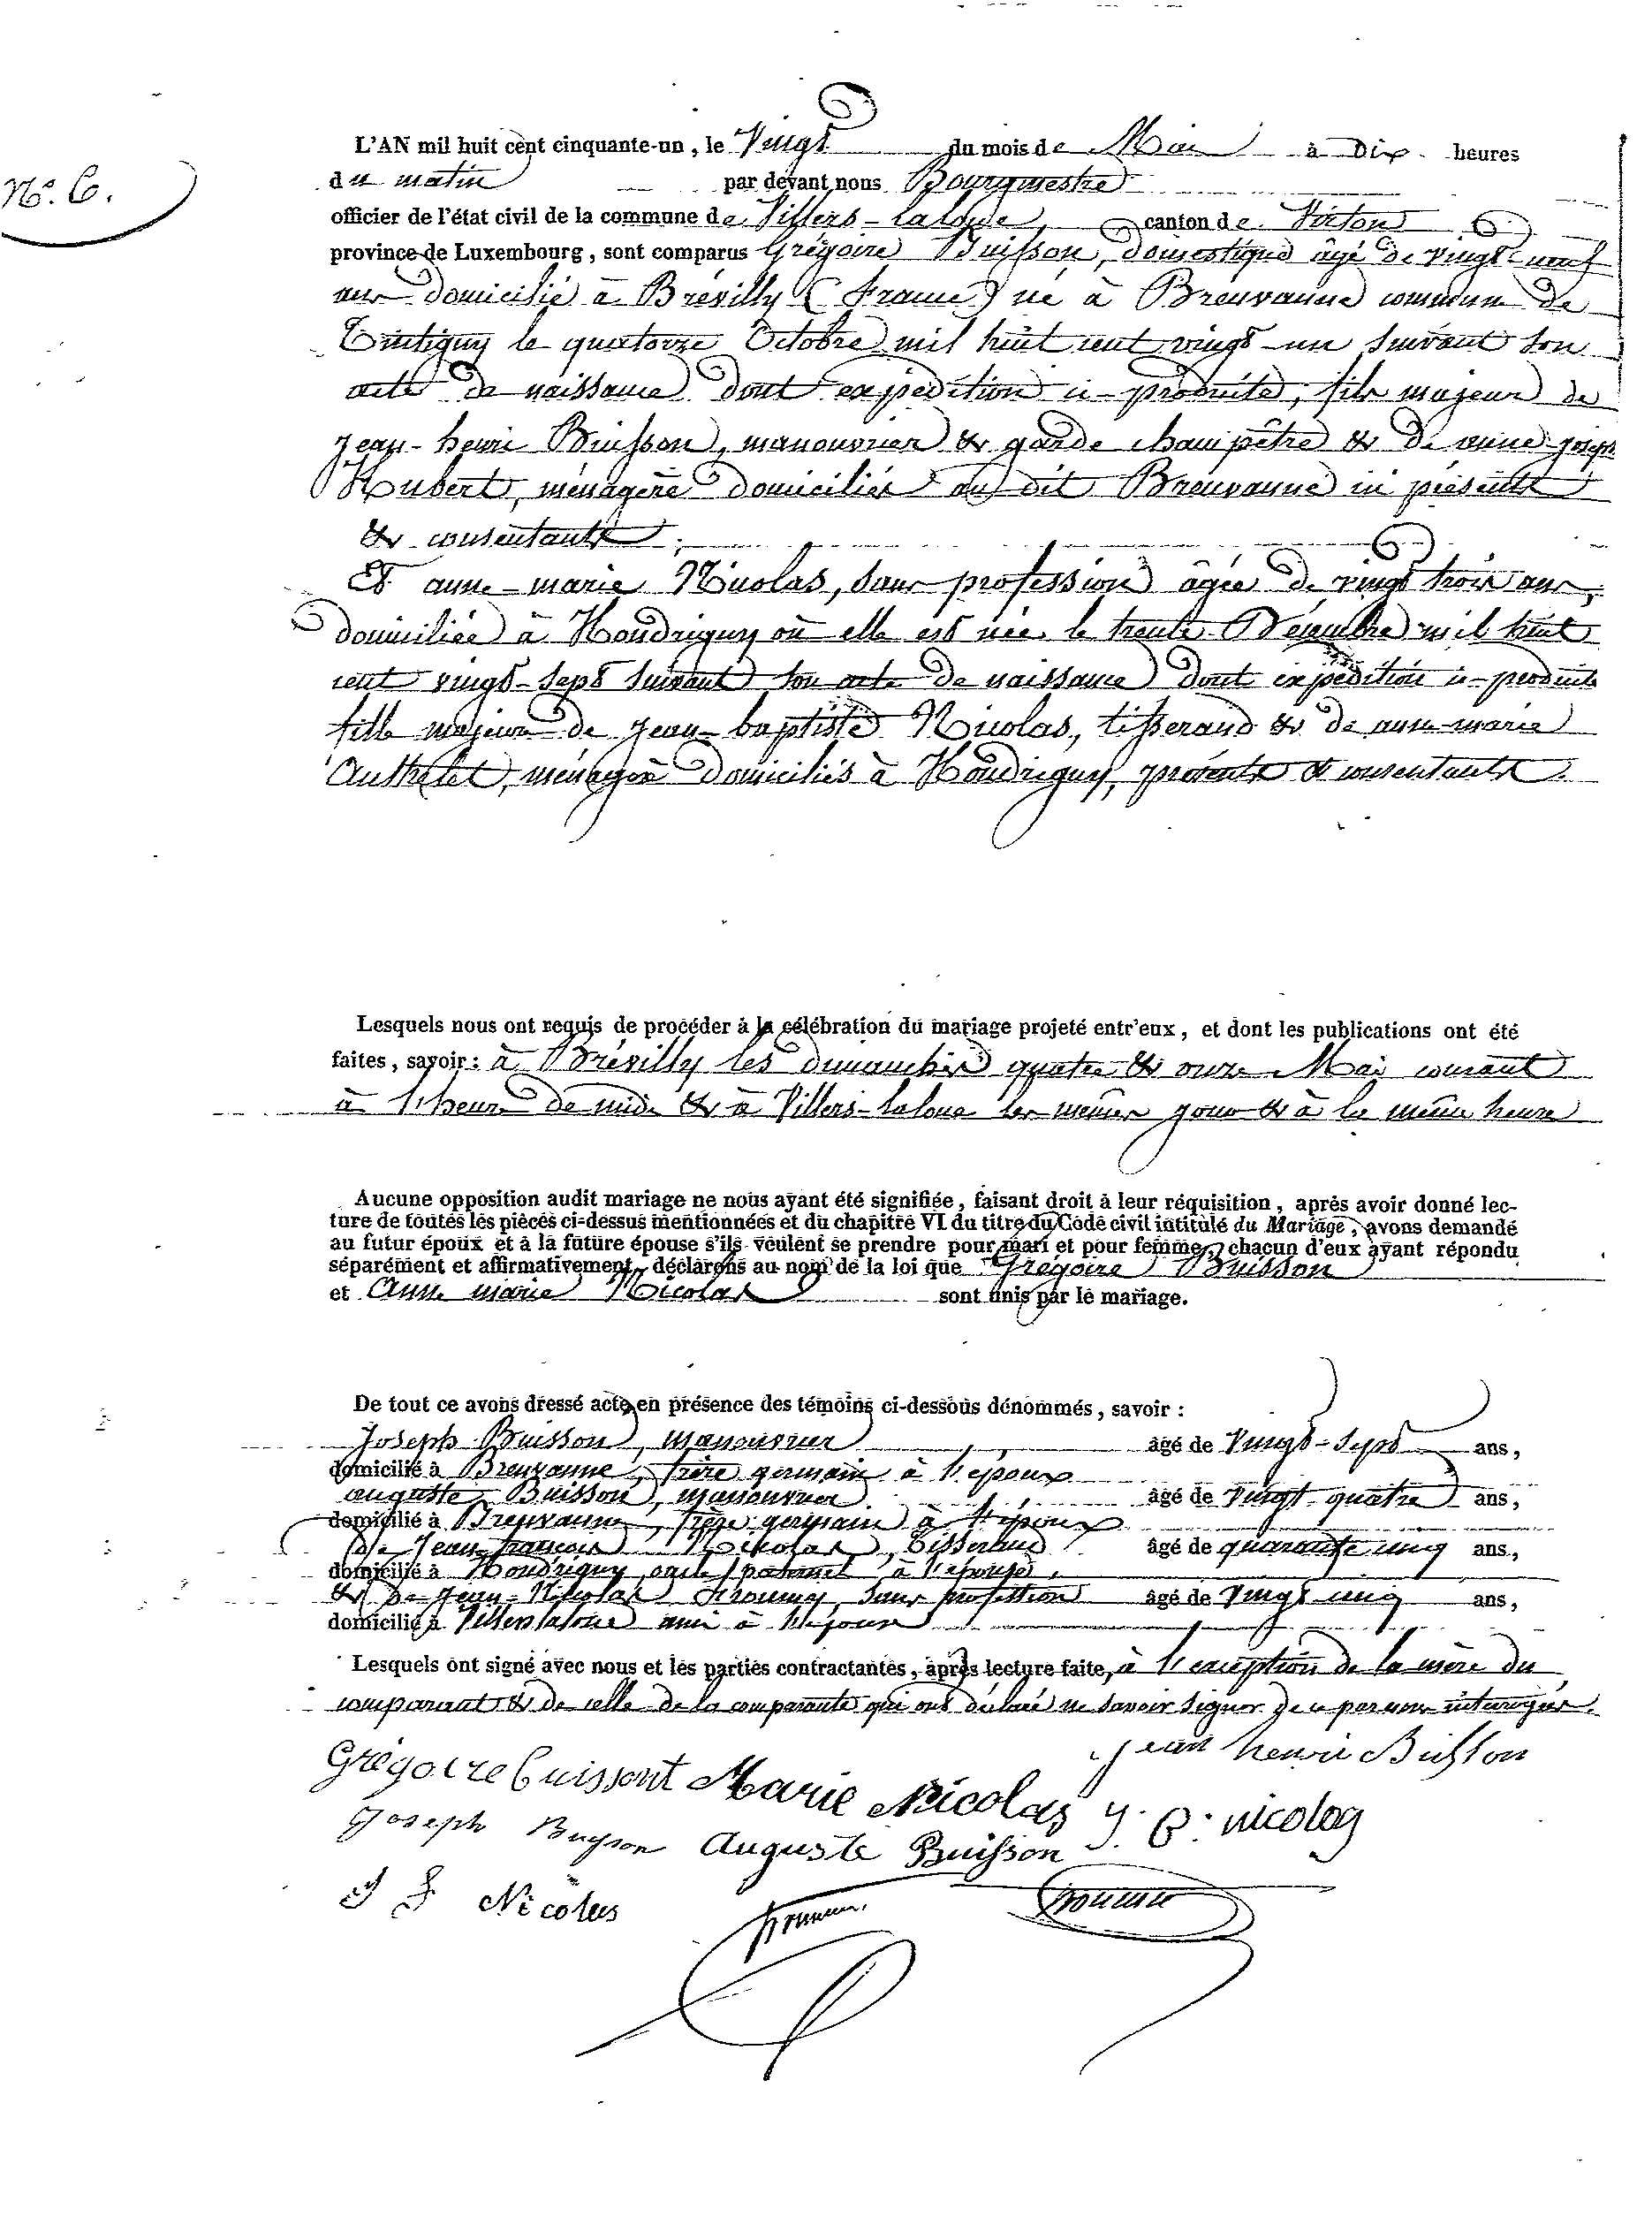 N°. 6.
L'AN mil huit cent cinquante-un, le Vingt du mois de Mai à Dix heures
du matin par devant nous Bourgmestre
officier de l'état civil de la commune de Villers-laloue canton de Virton
province de Luxembourg, sont comparus Grégoire Buisson, domestique âgé de vingt-neuf
ans domicilié à Brévilly (France) né à Breuvanne commune de
Tintigny le quatorze Octobre mil huit cent vingt-un suivant son
acte de naissance dont expédition ci-produite, fils majeur de
jean-henri Buisson, manouvrier & garde champêtre & de anne-joseph
Hubert, ménagère domiciliés au dit Breuvanne ici présents
& consentants;
Et anne-marie Nicolas, sans profession âgée de vingt trois ans,
domiciliée à Houdrigny où elle est née le trente Décembre mil huit
cent vingt-sept suivant son acte de naissance dont expédition ci-produite
fille majeure de jean-baptiste Nicolas, tisserand & de anne-marie
Authelet, ménagère domiciliés à Houdrigny, présents & consentants.
Lesquels nous ont requis de procéder à la célébration du mariage projeté entr'eux, et dont les publications ont été
faites, savoir: à Brévilly les dimanches quatre & onze Mai courant
à l'heure de midi & à Villers-laloue les mêmes jours & à la même heure
Aucune opposition audit mariage ne nous ayant été signifiée, faisant droit à leur réquisition, après avoir donné lec-
ture de toutes les pièces ci-dessus mentionnées et du chapitre VI du titre du Code civil intitulé du Mariage, avons demandé
au futur époux et à la future épouse s'ils veulent se prendre pour mari et pour femme, chacun d'eux ayant répondu
séparément et affirmativement, déclarons au nom de la loi que Grégoire Buisson
et Anne marie Nicolas sont unis par le mariage.
De tout ce avons dressé acte en présence des témoins ci-dessous dénommés, savoir:
Joseph Buisson, manouvrier âgé de Vingt-Sept ans,
domicilié à Breuvanne, frère germain à l'époux
auguste Buisson, manouvrier âgé de Vingt quatre ans,
domicilié à Breuvanne, frère germain à l'époux
de Jean-françois Nicolas, Tisserand âgé de quarante cinq ans,
domicilié à Houdrigny, oncle paternel à l'épouse,
& de Jean-Nicolas sans profession âgé de Vingt cinq ans,
domicilié à Villerslaloue ami à l'époux
Lesquels ont signé avec nous et les parties contractantes, après lecture faite, à l'exception de la mère du
comparant & de celle de la comparante qui ont déclaré ne savoir signer de ce par nous interrogées.
jean henri Buisson
Grégoire buissont Marie Nicolas J. B. nicolas
Joseph Buysson Auguste Buisson
J F Nicolas